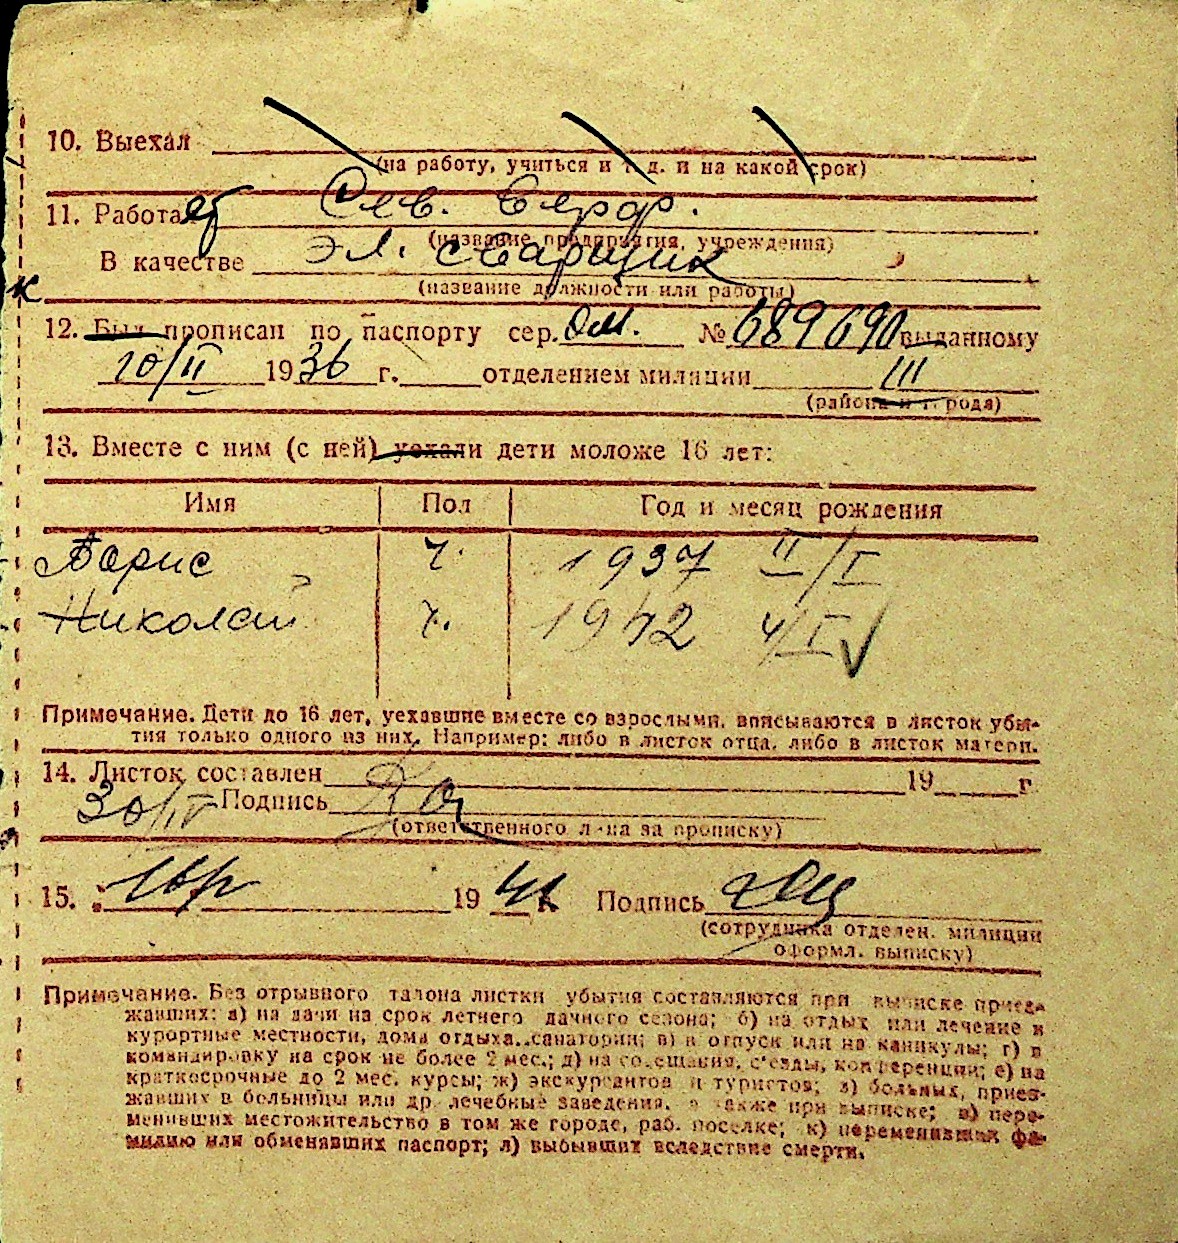 10. Выехал
(на работу, учиться и т. д. и на какой срок)
11. Работает Сев. Верф.
(название предприятия, учреждения)
В качестве эл. сварщик
(название должности или работы)
к
12. Был прописан по паспорту сер. ОМ. № 689690 выданному
10/II 1936 г. отделением милиции III
(района и города)
13. Вместе с ним (с ней) уехали дети моложе 16 лет:
Имя Пол Год и месяц рождения
Борис 1937 II/I
Николай 1942 4/I
Примечание. Дети до 16 лет, уехавшие вместе со взрослыми, вписываются в листок убы-
тия только одного из них. Например: либо в листок отца, либо в листок матери.
14. Листок составлен 19 г.
30/IV Подпись
(ответственного л-ца за прописку)
15. 19 г. Подпись
(сотрудника отделен. милиции
оформл. выписку)
Примечание. Без отрывного талона листки убытия составляются при выписке приез-
жавших: а) на дачи на срок летнего дачного сезона; б) на отдых или лечение в
курортные местности, дома отдыха, санатории; в) в отпуск или на каникулы; г) в
командировку на срок не более 2 мес.; д) на совещания, с'езды, конференции; е) на
краткосрочные до 2 мес. курсы; ж) экскурсантов и туристов; з) больных, приез-
жавших в больницы или др. лечебные заведения, а также при выписке; и) пере-
менивших местожительство в том же городе, раб. поселке; к) переменивших фа-
милию или обменявших паспорт; л) выбывших вследствие смерти.